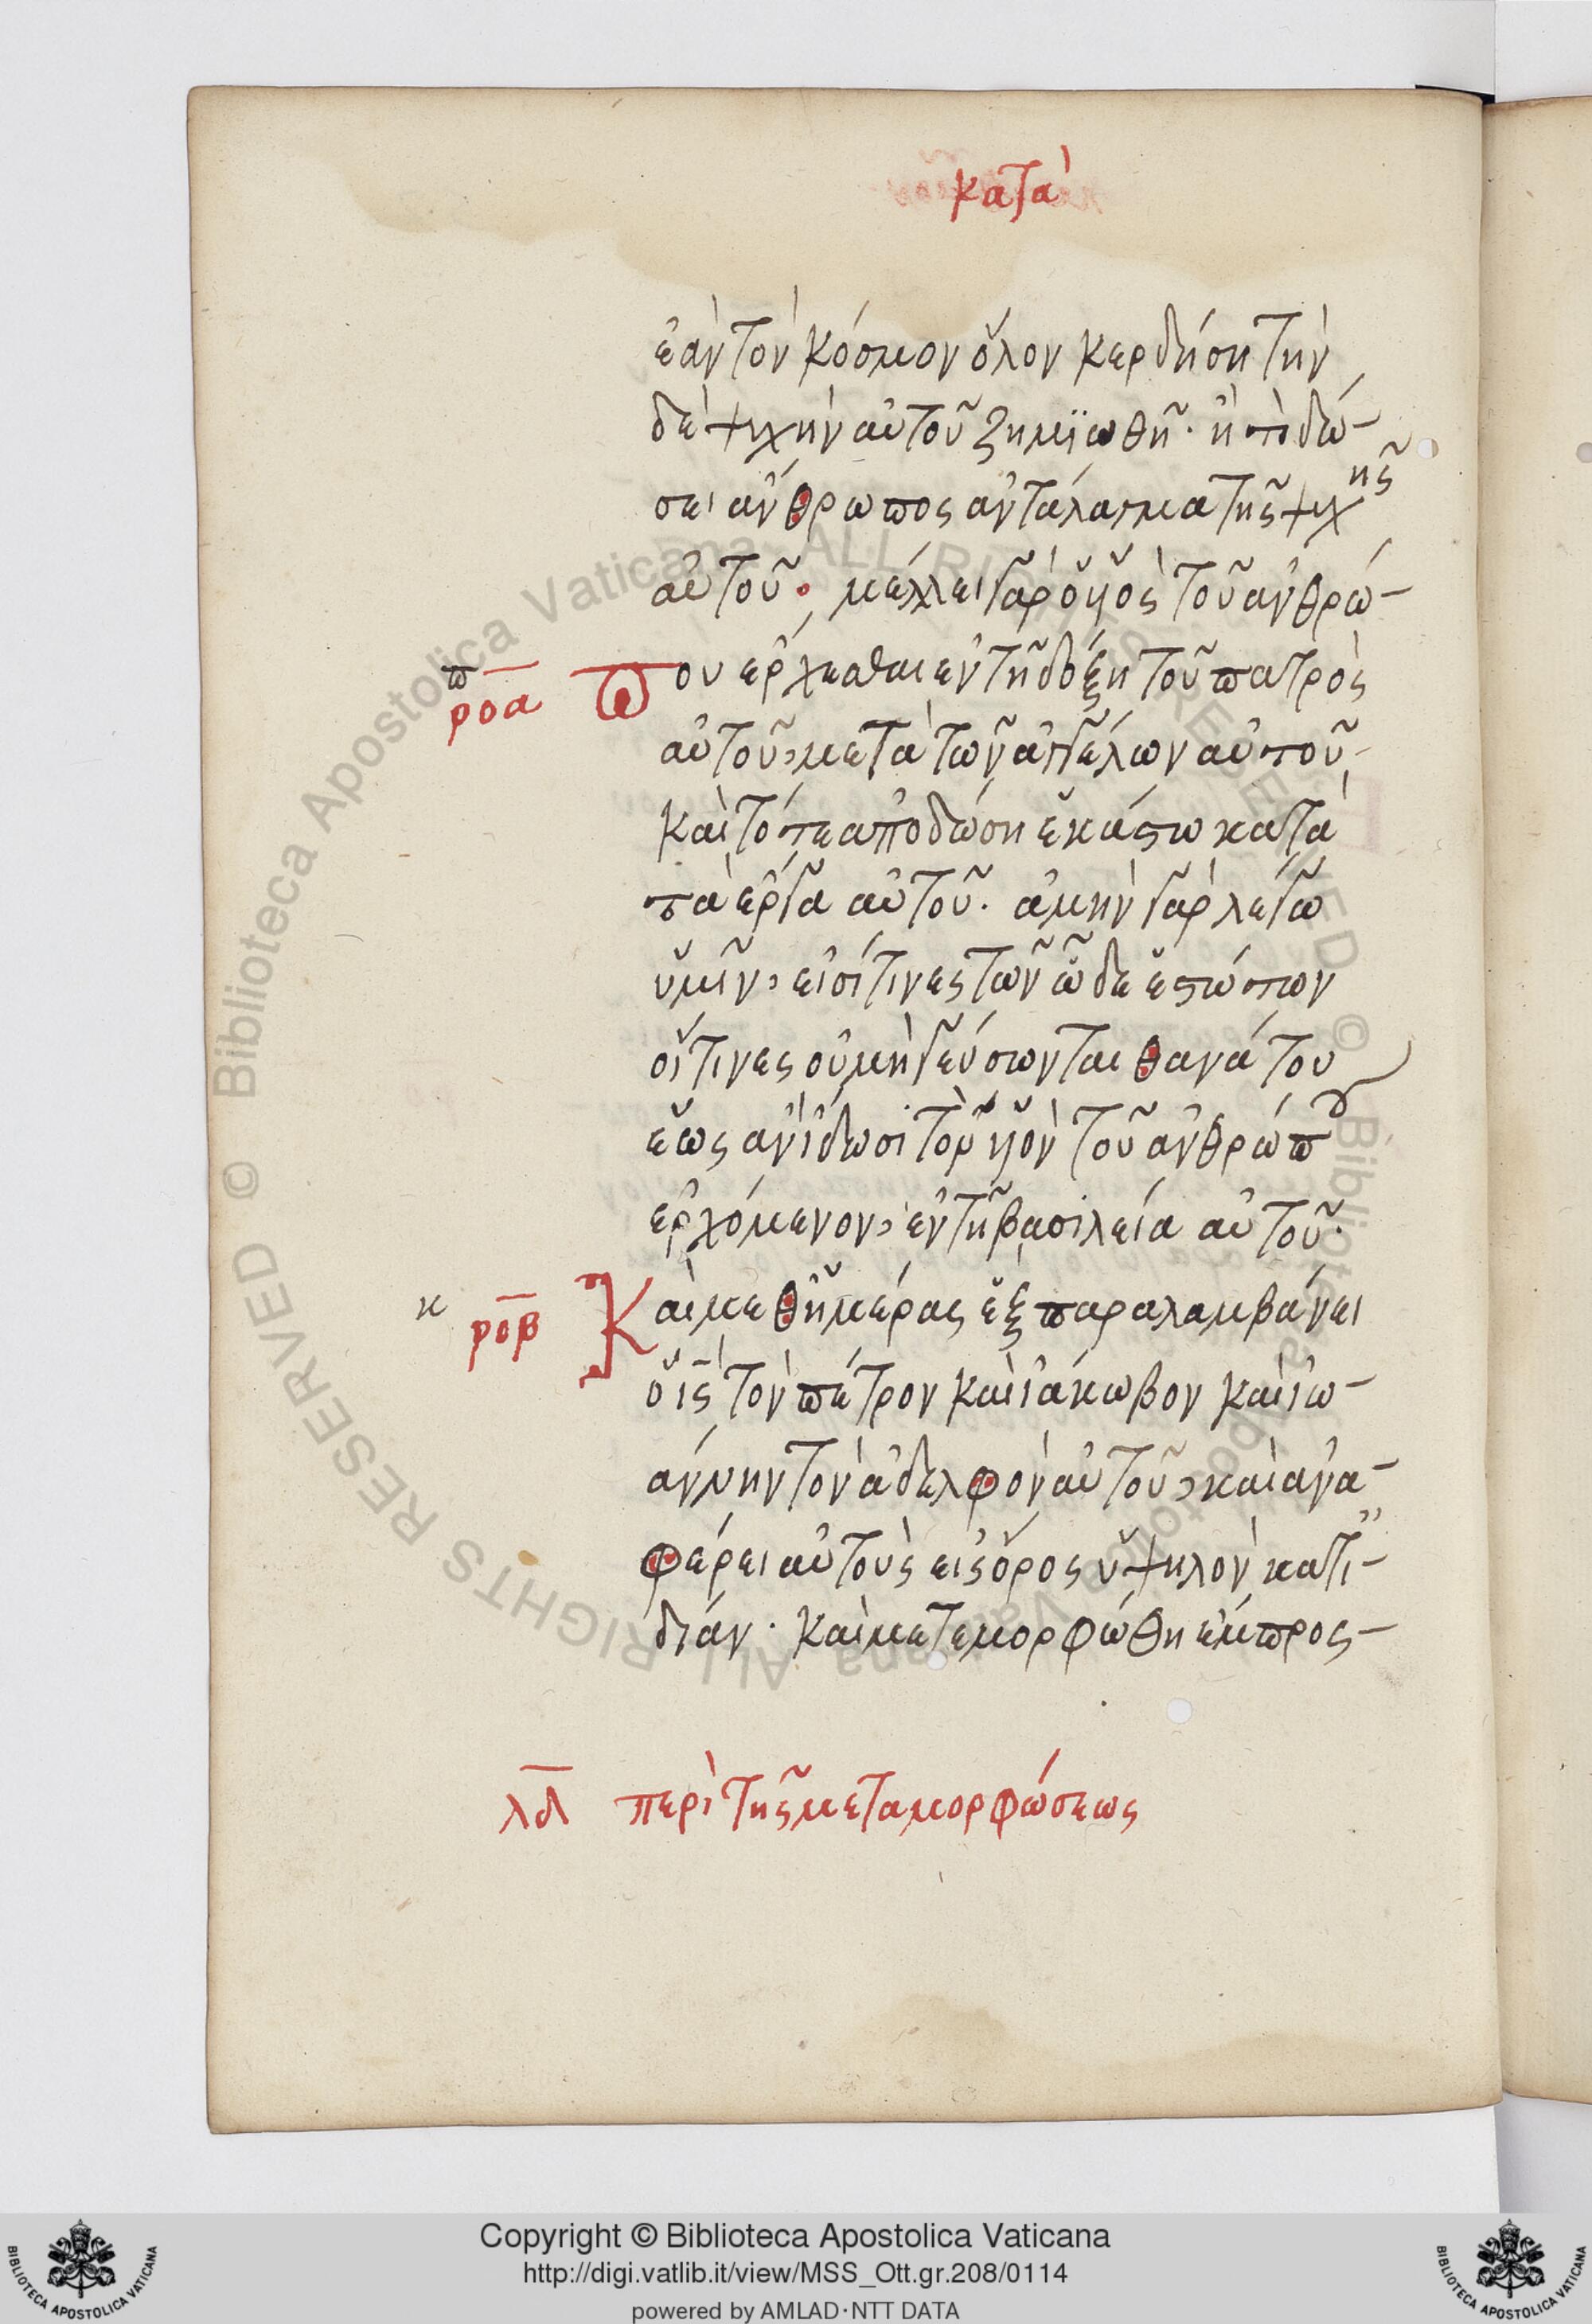 κατὰ
ἐὰν τὸν κόσμον ὅλον κερδήση τὴν
δὲ ψυχὴν αὐτοῦ ζημϊωθῆ· ἢ τί δώ-
σει ἄνθρωπος ἀντάλαγμα τῆς ψυχῆς
αὐτοῦ· μέλλει γὰρ ὁ υἱὸς τοῦ ἀνθρώ-
ροα που ἔρχεσθαι ἐν τῆ δόξη τοῦ πατρὸς
αὐτοῦ, μετὰ τῶν ἀγγέλων αὐτοῦ,
καὶ τότε ἀποδώση ἑκάστω κατὰ
τὰ ἔργα αὐτοῦ. ἀμὴν γὰρ λέγω
ὑμῖν, εἰσί τινες τῶν ὧδε ἑστώτων
οἵτινες οὐ μὴ γεύσωνται θανάτου
ἕως ἂν ἴδωσι τὸν υἱὸν τοῦ ἀνθρώπου
ἐρχόμενον, ἐν τῆ βασιλεία αὐτοῦ.
κ ροβ Καὶ μεθ ἡμέρας ἓξ παραλαμβάνει
ὁ ις τὸν πέτρον καὶ ἰάκωβον καὶ ἰω-
άννην τὸν ἀδελφὸν αὐτοῦ, καὶ ἀνα-
φέρει αὐτοὺς εἰς ὄρος ὑψηλὸν κατι-
δίαν. καὶ μετεμορφώθη ἔμπρος-
λδ περὶ τῆς μεταμορφώσεως
Copyright © Biblioteca Apostolica Vaticana
http://digi.vatlib.it/view/MSS_Ott.gr.208/0114
powered by AMLAD·NTT DATA
BIBLIOTECA APOSTOLICA VATICANA
BIBLIOTECA APOSTOLICA VATICANA
© Biblioteca Apostolica Vaticana ALL RIGHTS RESERVED © Biblioteca Apostolica Vaticana ALL RIGHTS RESERVED